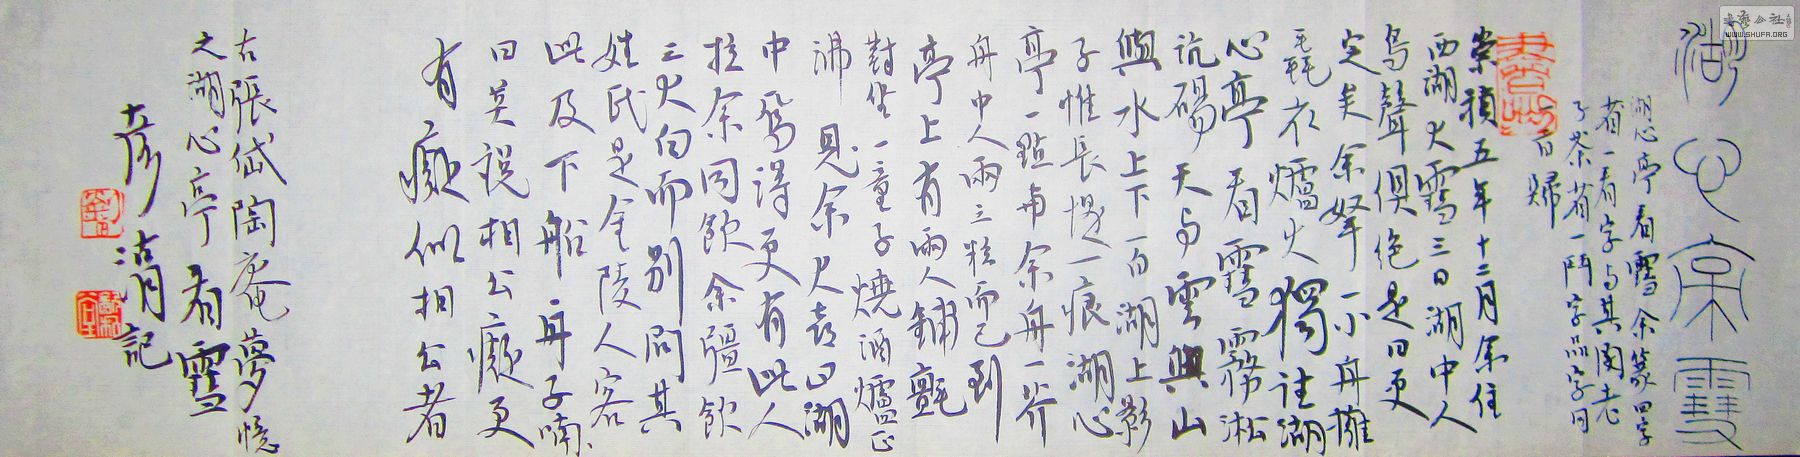 書法公社
WWW.SHUFA.ORG
湖心亭雪
湖心亭看雪余篆四字
省一看字与其閑老
子茶省一鬥字品字同
崇禎五年十二月余住
西湖大雪三日湖中人
鸟聲俱绝是日更
定矣余拏一小舟擁
毳衣爐火獨往湖
心亭看雪霧凇
沆碭天与雲與山
與水上下一白湖上影
子惟長堤一痕湖心
亭一點與余舟一芥
舟中人兩三粒而已到
亭上有兩人鋪氈
對坐一童子燒酒爐正
沸見余大喜曰湖
中焉得更有此人
拉余同飲余彊飲
三大白而别問其
姓氏是金陵人客
此及下船舟子喃〻
曰莫説相公癡更
有癡似相公者
右張岱陶庵夢憶
之湖心亭看雪
彦湖記